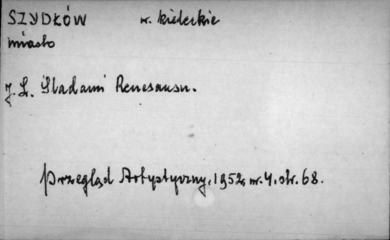 SZYDŁÓW w. kieleckie
miasto
J. L. Śladami Renesansu.
Przegląd Artystyczny, 1952, nr. 4, str. 68.